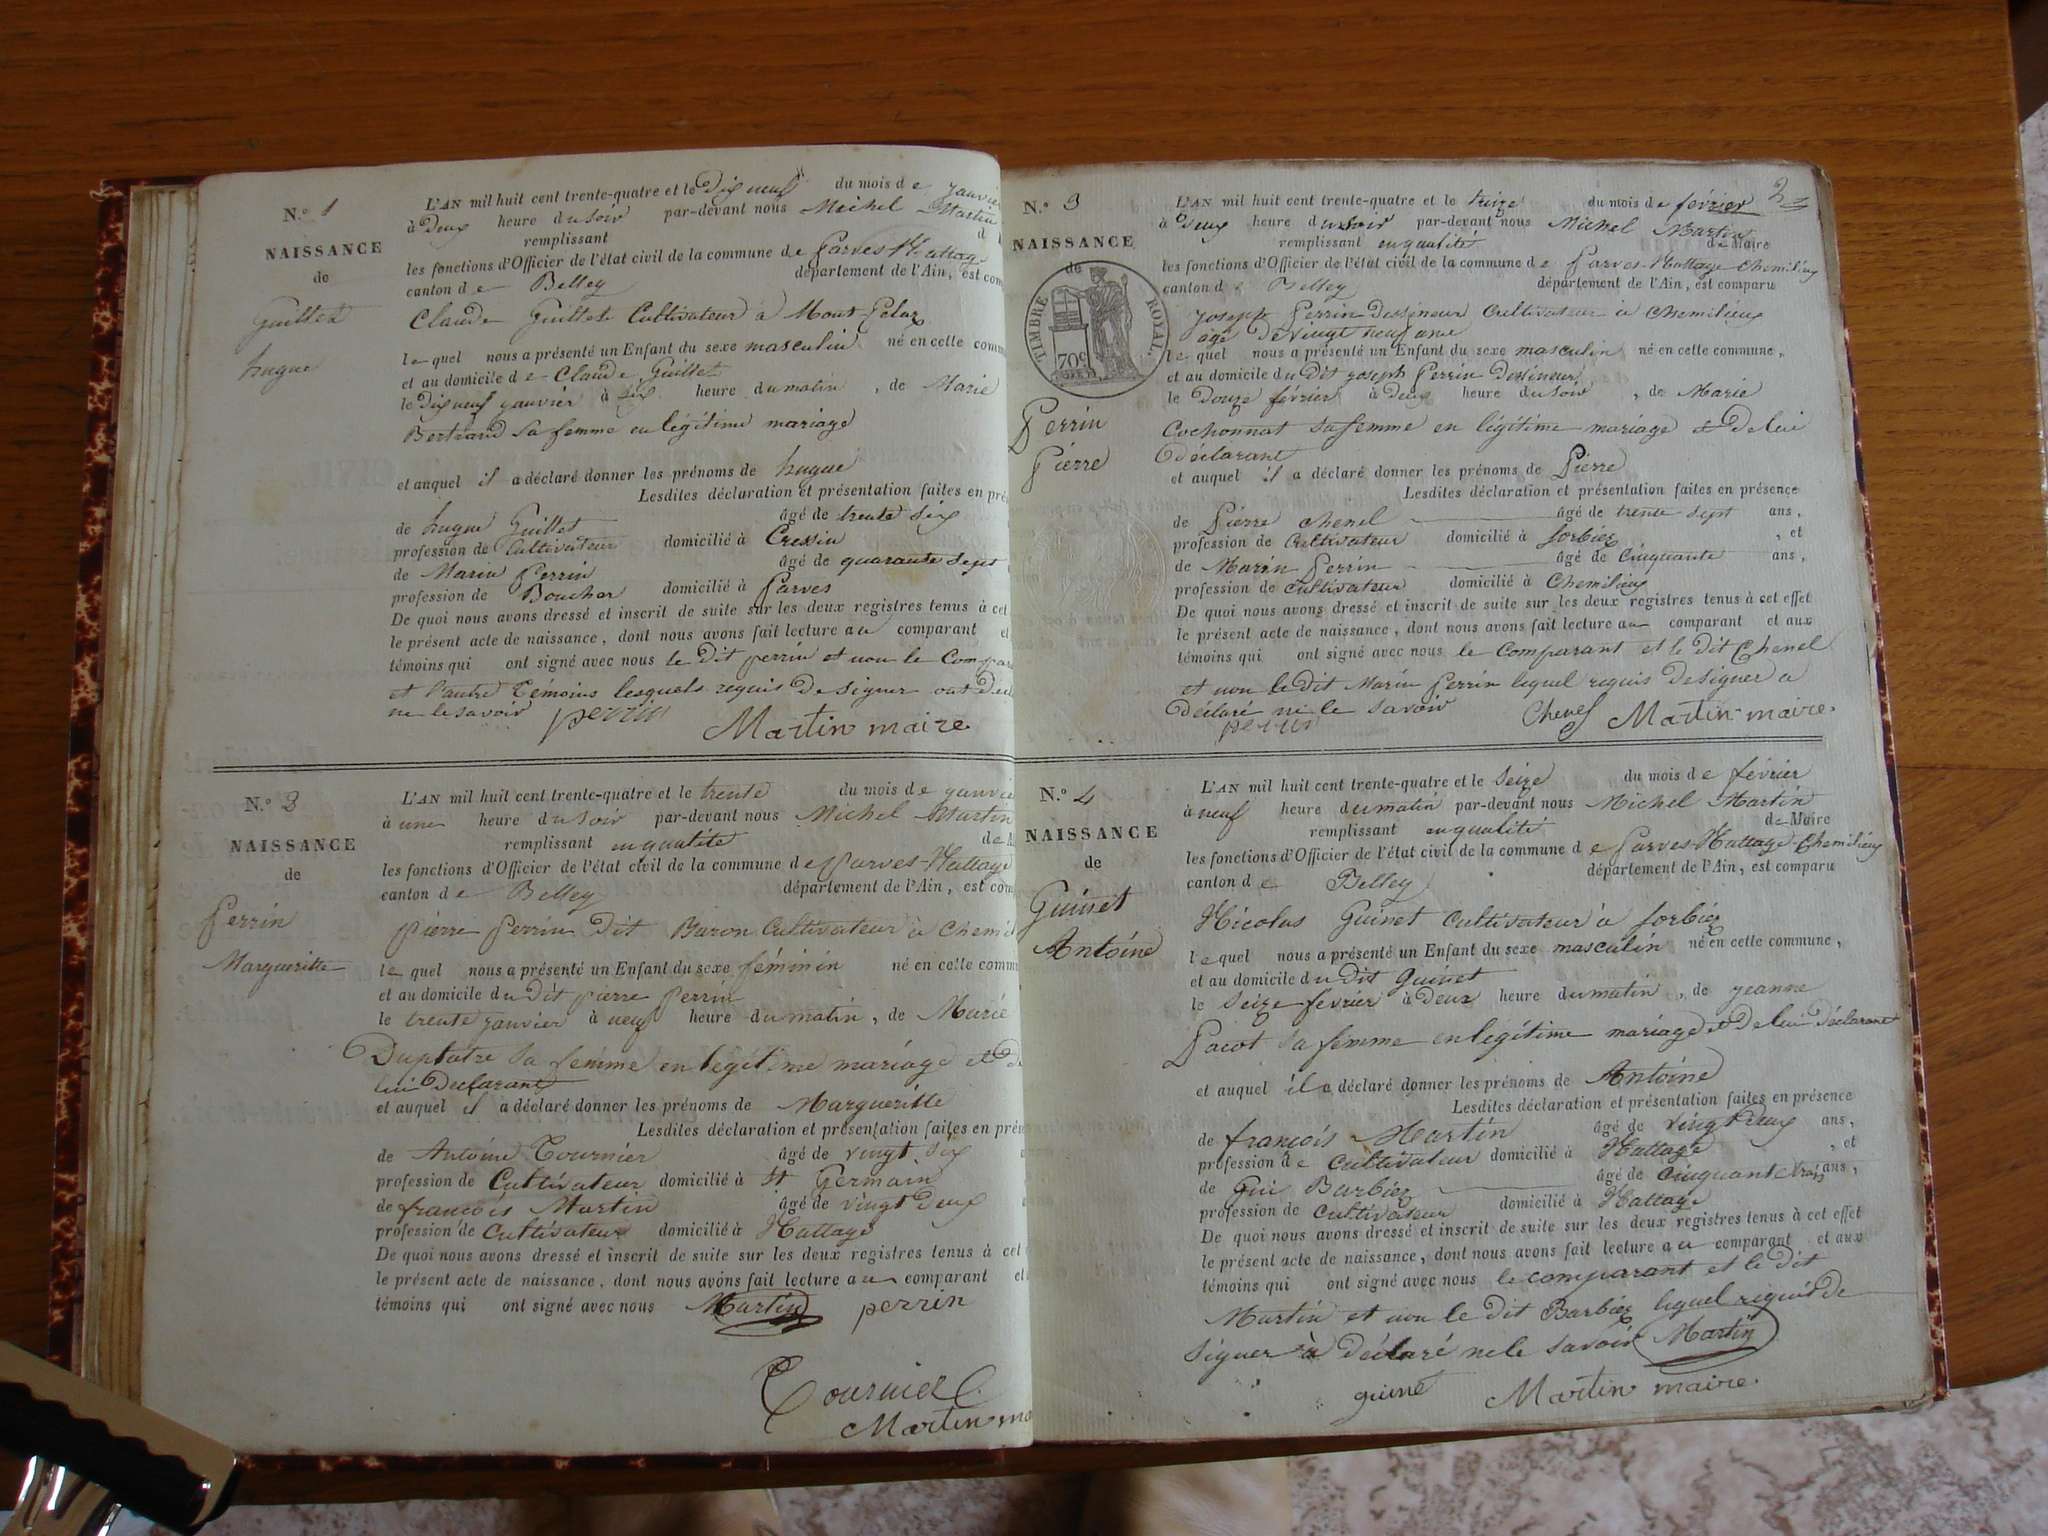 N.° 1
NAISSANCE
de
Guillet
hugue
L'AN mil huit cent trente-quatre et le Dix neuf du mois de janvier
à Deux heure du Soir par-devant nous Michel Martin
remplissant
les fonctions d'Officier de l'état civil de la commune de Parves Nattage
canton de Belley département de l'Ain, est com
Claude Guillet Cultivateur à Mont Pelaz
lequel nous a présenté un Enfant du sexe masculin né en cette comm
et au domicile de Claude Guillet
le Dix neuf janvier à Six heure du matin, de Marie
Bertrand Sa femme en légitime mariage
et auquel il a déclaré donner les prénoms de hugue
Lesdites déclaration et présentation faites en pré
de hugue Guillet âgé de trente Six
profession de Cultivateur domicilié à Cressin
de Marin Perrin âgé de quarante Sept
profession de Boucher domicilié à Parves
De quoi nous avons dressé et inscrit de suite sur les deux registres tenus à cet
le présent acte de naissance, dont nous avons fait lecture au comparant et
témoins qui ont signé avec nous le Dit perrin et non le Compar
et l'autre Témoins lesquels requis De Signer ont Décl
ne le savoir perrin Martin maire
N.° 2
NAISSANCE
de
Perrin
Margueritte
L'AN mil huit cent trente-quatre et le trente du mois de janvie
à une heure du Soir par-devant nous Michel Martin
remplissant en qualité de M
les fonctions d'Officier de l'état civil de la commune de Parves-Nattage
canton de Belley département de l'Ain, est com
Pierre Perrin Dit Baron Cultivateur à Chemil
lequel nous a présenté un Enfant du sexe féminin né en cette comm
et au domicile du Dit Pierre Perrin
le trente janvier à neuf heure du matin, de Marie
Duplatre Sa femme en légitime mariage et De
lui Déclarant
et auquel il a déclaré donner les prénoms de Margueritte
Lesdites déclaration et présentation faites en prés
de Antoine Tournier âgé de vingt Six
profession de Cultivateur domicilié à St Germain
de françois Martin âgé de vingt Deux
profession de Cultivateur domicilié à Nattage
De quoi nous avons dressé et inscrit de suite sur les deux registres tenus à cet
le présent acte de naissance, dont nous avons fait lecture au comparant et
témoins qui ont signé avec nous Martin perrin
Tournier
Martin ma
N.° 3
NAISSANCE
de
TIMBRE ROYAL
70c
Perrin
Pierre
L'AN mil huit cent trente-quatre et le treize du mois de février
à Deux heure du Soir par-devant nous Michel Martin
remplissant en qualité de Maire
les fonctions d'Officier de l'état civil de la commune de Parves-Nattage Chemilieu
canton de Belley département de l'Ain, est comparu
joseph Perrin Dessineur Cultivateur à Chemilieu
âgé De vingt neuf ans
lequel nous a présenté un Enfant du sexe masculin né en cette commune,
et au domicile du Dit joseph Perrin Dessineur
le Douze février à Deux heure du Soir, de Marie
Cochonnat Sa femme en légitime mariage et De lui
Déclarant
et auquel il a déclaré donner les prénoms de Pierre
Lesdites déclaration et présentation faites en présence
de Pierre Chenel âgé de trente Sept ans,
profession de Cultivateur domicilié à Sorbier, et
de Marin Perrin âgé de Cinquante ans,
profession de Cultivateur domicilié à Chemilieu
De quoi nous avons dressé et inscrit de suite sur les deux registres tenus à cet effet
le présent acte de naissance, dont nous avons fait lecture au comparant et aux
témoins qui ont signé avec nous le Comparant et le Dit Chenel
et non le Dit Marin Perrin lequel requis De Signer a
Déclaré ne le Savoir Chenel Martin maire.
N.° 4
NAISSANCE
de
Guinet
Antoine
L'AN mil huit cent trente-quatre et le Seize du mois de février
à neuf heure du matin par-devant nous Michel Martin
remplissant en qualité de Maire
les fonctions d'Officier de l'état civil de la commune de Parves-Nattage-Chemilieu
canton de Belley département de l'Ain, est comparu
Nicolas Guinet Cultivateur à Sorbier
lequel nous a présenté un Enfant du sexe masculin né en cette commune,
et au domicile du Dit Guinet
le Seize février à Deux heure du matin, de jeanne
Pacot Sa femme en légitime mariage et De lui Déclarant
et auquel il a déclaré donner les prénoms de Antoine
Lesdites déclaration et présentation faites en présence
de françois Martin âgé de vingt Deux ans,
profession de Cultivateur domicilié à Nattage, et
de Gui Barbier âgé de Cinquante trois ans,
profession de Cultivateur domicilié à Nattage
De quoi nous avons dressé et inscrit de suite sur les deux registres tenus à cet effet
le présent acte de naissance, dont nous avons fait lecture au comparant et aux
témoins qui ont signé avec nous le comparant et le dit
Martin et non le Dit Barbier lequel requis De
Signer à Déclaré ne le Savoir Martin
guinet Martin maire.